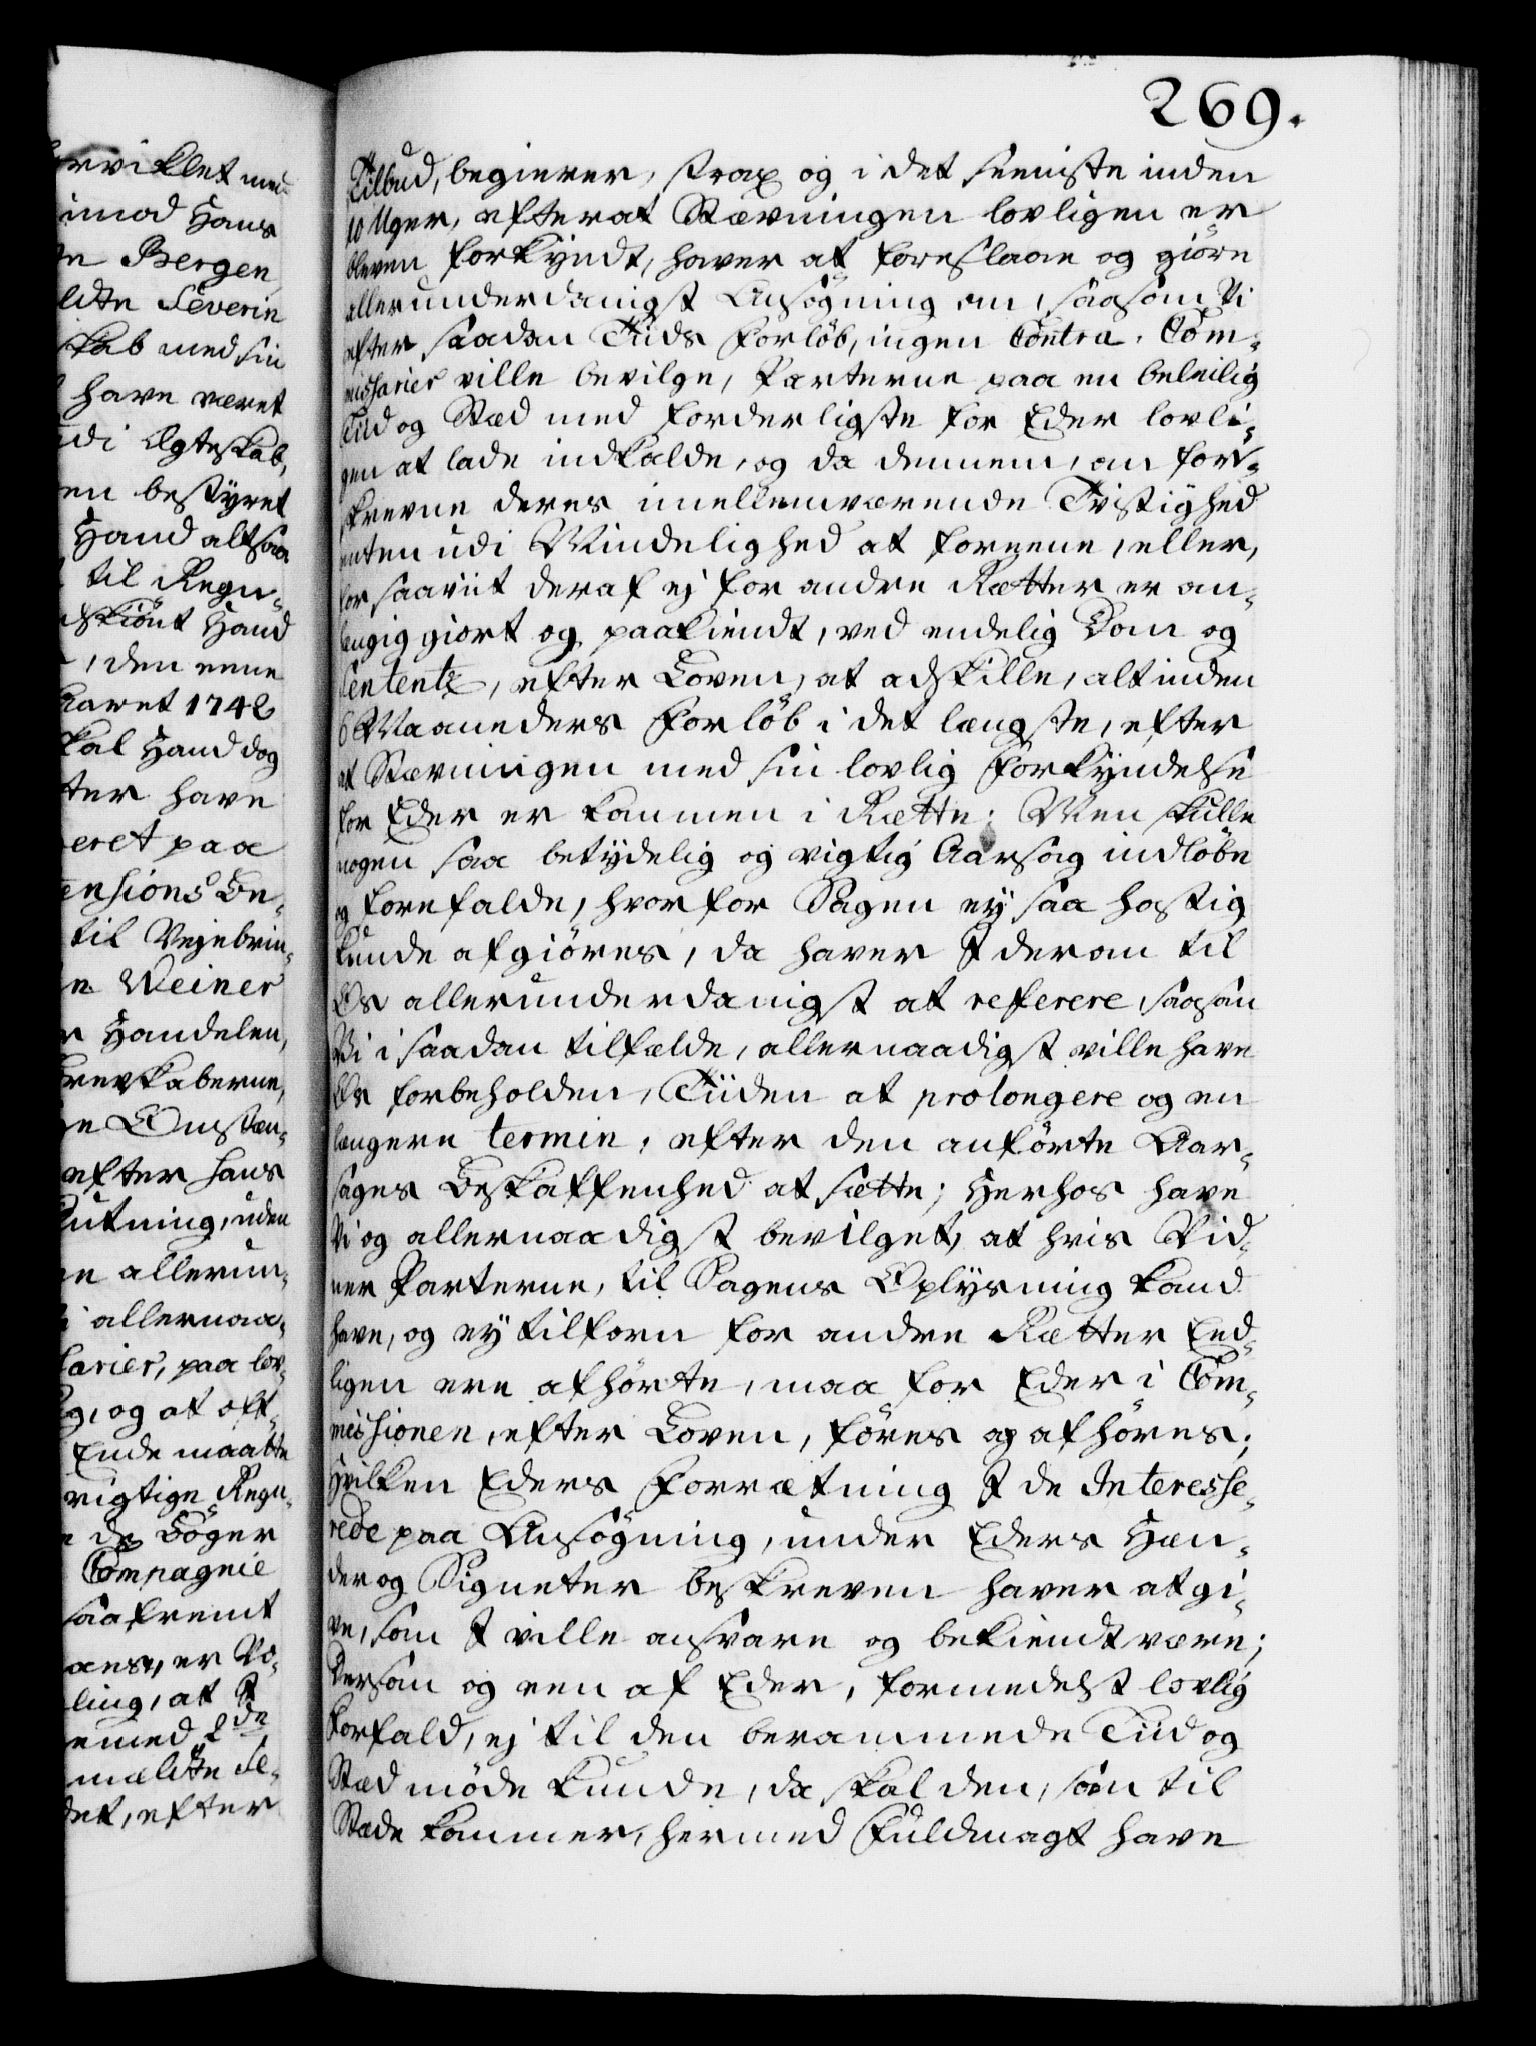 269.
Tilbud, begierer, strax og i det seeniste inden
10 Uger, efterat Stævningen lovligen er
bleven forkyndt, haver at foreslaae og giöre
allerunderdanigst Ansögning om, saasom Vi
efter saadan Tiids Forlöb, ingen Contra-Com-
missarier ville bevilge, Parterne paa en beleilig
Tiid og Stæd med forderligste for Eder lovli-
gen at lade indkalde, og da dennem, om for-
skrevne deres imellemværende Tvistighed
enten udi Mindelighed at foreene, eller,
for saaviit deraf ej for andre Rætter er an-
hængig giort og paakiendt, ved endelig Dom og
Sententz, efter Loven, at adskille, alt inden
6 Maaneders Forlöb i det længste, efter
at Stævningen med sin lovlig Forkyndelse
for Eder er kommen i Rætte; Men skulle
nogen saa betydelig og vigtig Aarsag indlöbe
og forefalde, hvorfor Sagen ey saa hastig
kunde afgiöres, da haver I derom til
Os allerunderdanigst at referere, saasom
Vi i saadan tilfælde, allernaadigst ville have
Os forbeholden, Tiiden at prolongere og en
længere termin, efter den anförte Aar-
sages Beskaffenhed at sætte; Herhos have
Vi og allernaadigst bevilget, at hvis Vid-
ner Parterne, til Sagens Oplysning kand
have, og ey tilforn for andre Rætter Eed-
ligen ere afhörte, maa for Eder i Com-
missionen, efter Loven, föres og afhöres;
Hvilken Eders Forrætning I de Interesse-
rede paa Ansögning, under Eders Hæn-
der og Signeter beskreven haver at gi-
ve, som I ville ansvare og bekiendt være;
Dersom og een af Eder, formedelst lovlig
Forfald, ej til den berammede Tiid og
Stæd möde kunde, da skal den, som til
Stæde kommer, hermed Fuldmagt have